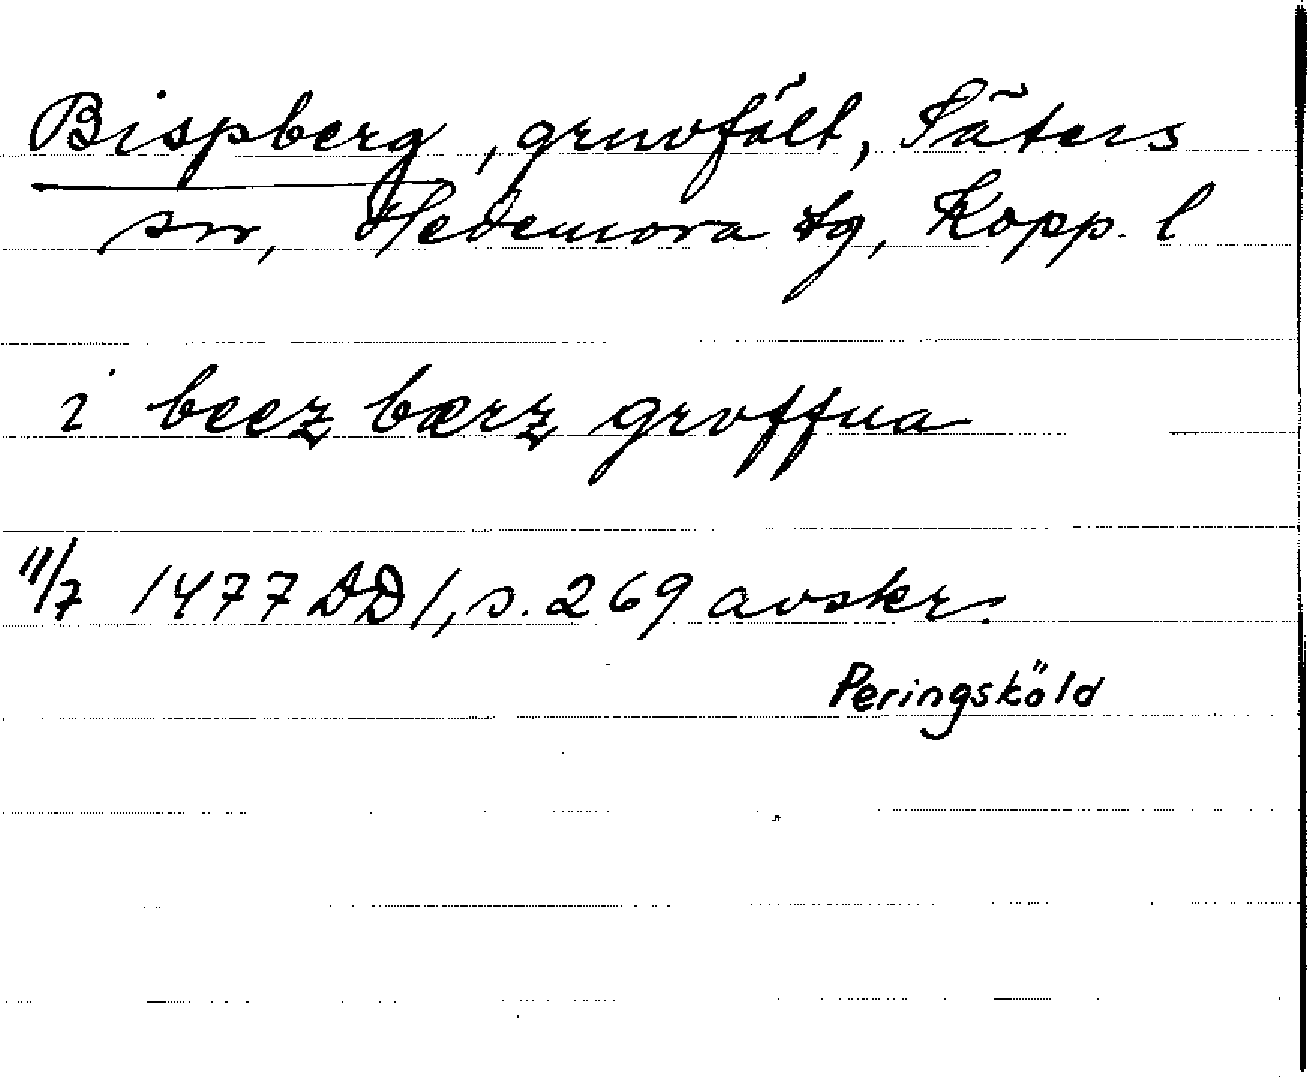 Bispberg, gruvfält, Säters
sn, Hedemora tg, Kopp. l
i beez bærz groffua
11/7 1477 DD 1, s. 269 avskr.
Peringsköld